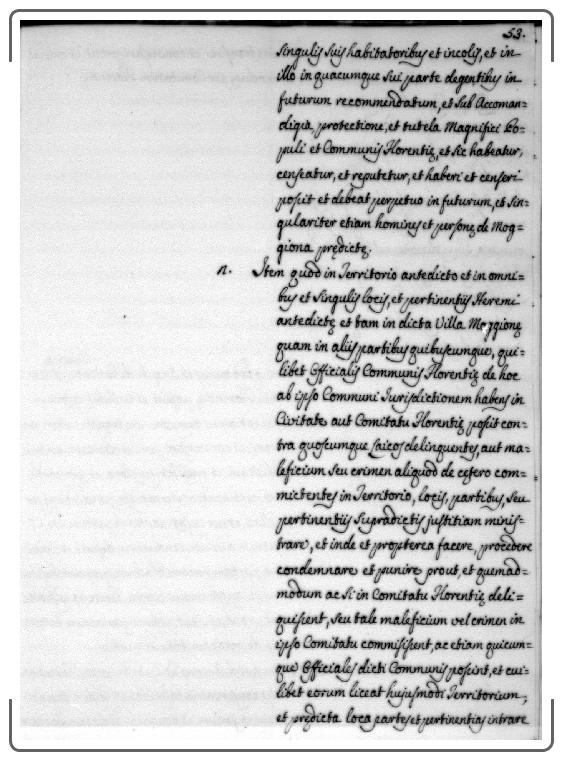 53.
singulis suis habitatoribus et incolis, et in
illo in quacumque sui parte degentibus in
futurum recommendatum, et sub Accoman=
digia, protectione, et tutela Magnifici Po=
puli et Communis Florentię, et sic habeatur,
censeatur, et reputetur, et haberi et censeri
possit et debeat perpetuo in futurum, et sin=
gulariter etiam homines et personę de Mog=
giona prędictę.
n. Item quod in Territorio antedicto et in omni=
bus et singulis locis, et pertinentiis Heremi
antedictę et tam in dicta Villa Moggionę
quam in aliis partibus quibuscumque, qui=
libet Officialis Communis Florentię de hoc
ab ipso Communi Iurisdictionem habens in
Civitate aut Comitatu Florentię possit con=
tra quoscumque Laicos delinquentes, aut ma=
leficium seu crimen aliquod de cetero com=
mictentes in Territorio, locis, partibus, seu
pertinentiis supradictis justitiam minis=
trare, et inde et propterea facere, procedere
condemnare et punire prout, et quemad=
modum ac si in Comitatu Florentię deli=
quissent, seu tale maleficium vel crimen in
ipso Comitatu commisissent, ac etiam quicum=
que Officiales dicti Communis possint, et cui=
libet eorum liceat hujusmodi Territorium,
et prędicta loca partes et pertinentias intrare